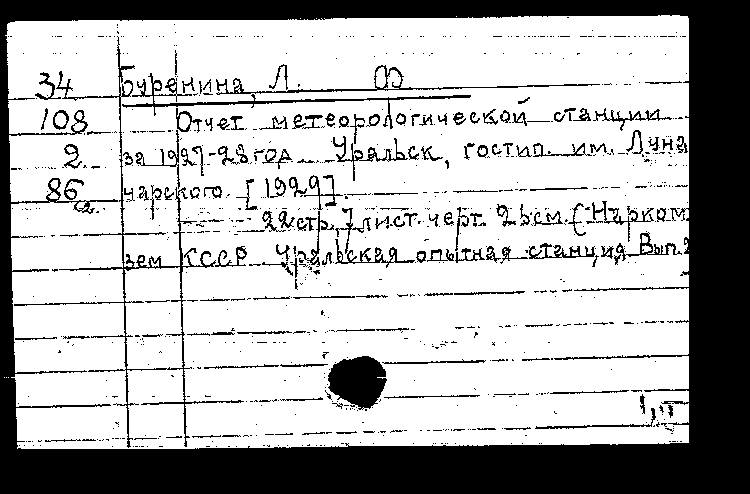 34 Буренина, Л. Ф
108 Отчет метеорологической станции
2 за 1927-28 год. Уральск, гостип. им. Луна
86 чарского. [1929].
22 стр., 1 лист. черт. 25 см. (Нарком
зем КССР. Уральская опытная станция Вып. 2